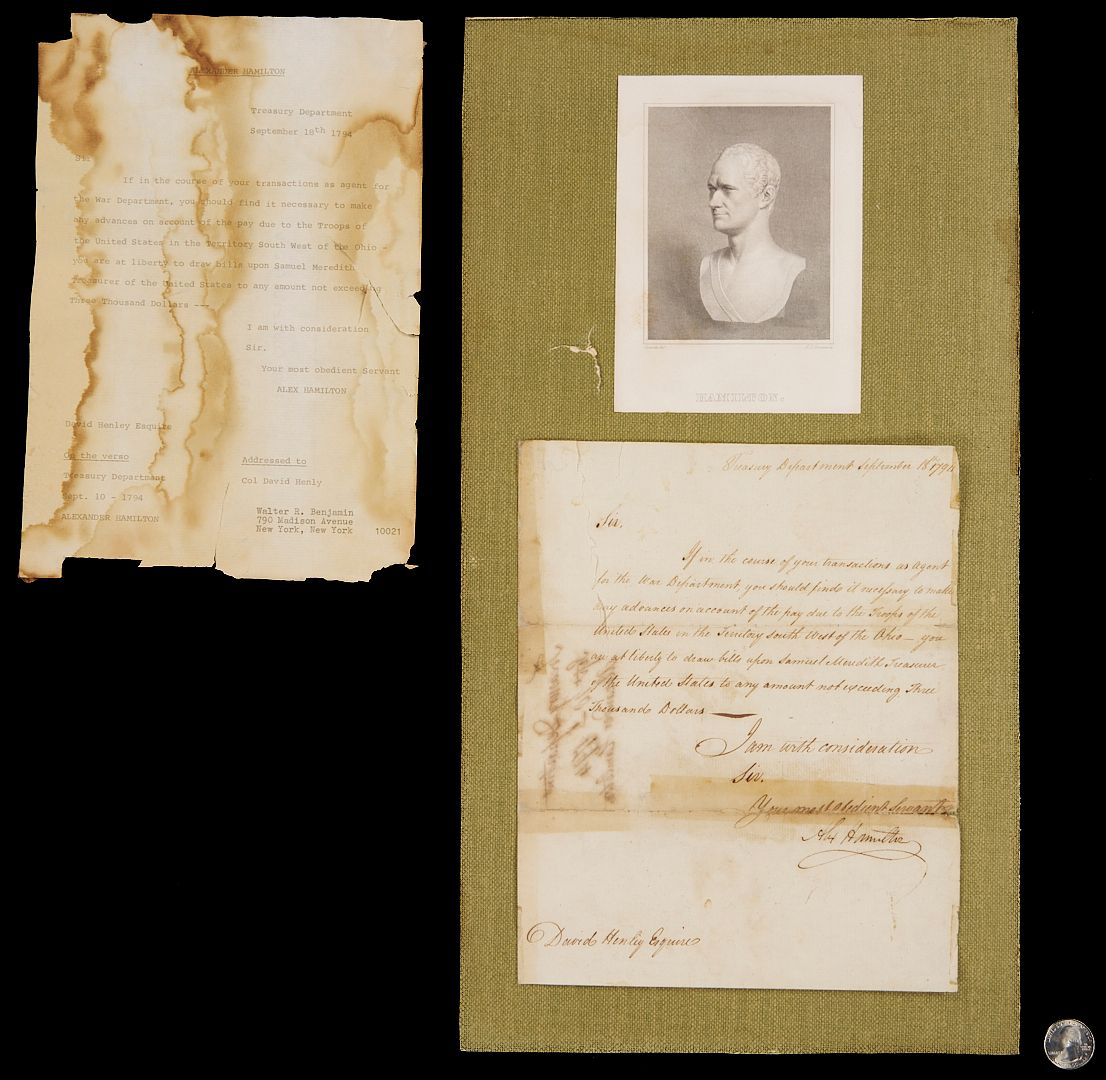 ALEXANDER HAMILTON
Treasury Department
September 18th 1794
Sir
If in the course of your transactions as agent for
the War Department, you should find it necessary to make
any advances on account of the pay due to the Troops of
the United States in the Territory South West of the Ohio -
you are at liberty to draw bills upon Samuel Meredith
Treasurer of the United States to any amount not exceeding
Three Thousand Dollars ---
I am with consideration
Sir.
Your most obedient Servant
ALEX HAMILTON
David Henley Esquire
On the verso
Treasury Department
Sept. 10 - 1794
ALEXANDER HAMILTON
Addressed to
Col David Henly
Walter R. Benjamin
790 Madison Avenue
New York, New York 10021
HAMILTON.
Treasury Department September 18th 1794
Sir,
If in the course of your transactions as Agent
for the War Department, you should find it necessary to make
any advances on account of the pay due to the Troops of the
United States in the Territory South West of the Ohio — you
are at liberty to draw bills upon Samuel Meredith Treasurer
of the United States to any amount not exceeding Three
Thousand Dollars —
I am with consideration
Sir.
Your most obedient Servant
Alex Hamilton
David Henley Esquire